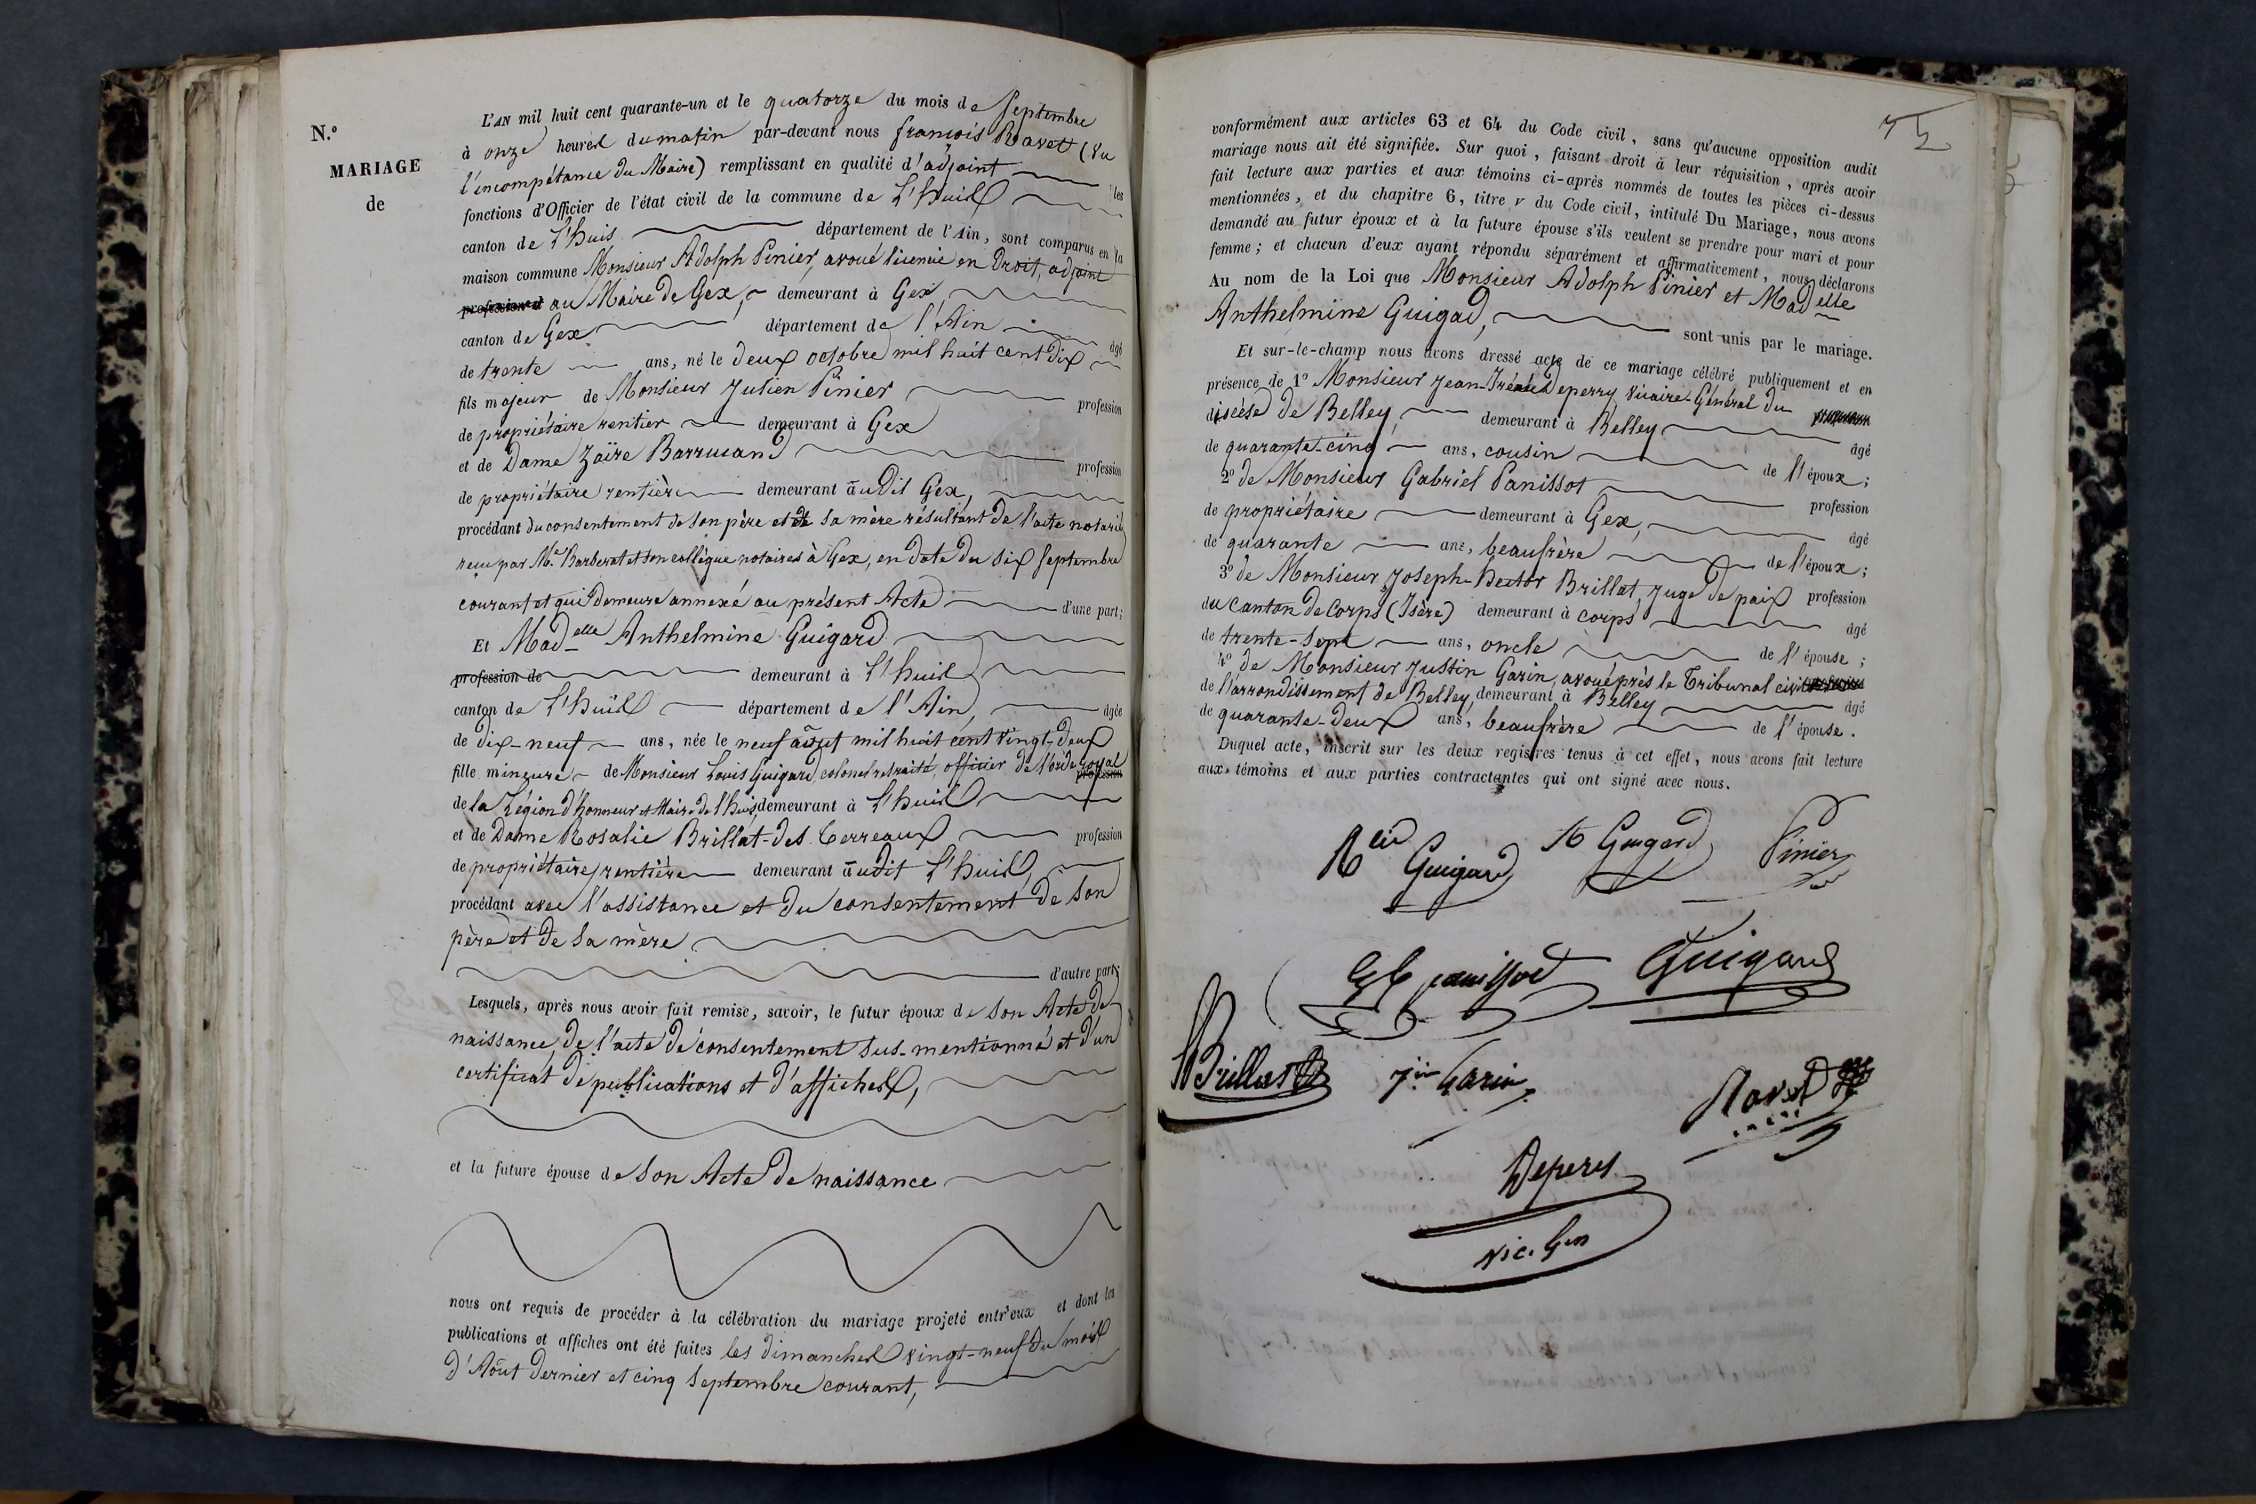 N.º
MARIAGE
de
L'AN mil huit cent quarante-un et le quatorze du mois de Septembre
à onze heures du matin par-devant nous françois Ravet (Vu
l'incompétance du Maire) remplissant en qualité d'adjoint les
fonctions d'Officier de l'état civil de la commune de L'huis
canton de L'huis département de l'Ain, sont comparus en la
maison commune Monsieur Adolph Pinier, avoué licencié en Droit, adjoint
profession d au Maire de Gex, demeurant à Gex,
canton de Gex département de l'Ain âgé
de trente ans, né le deux octobre mil huit cent dix
fils majeur de Monsieur Julien Pinier profession
de propriétaire rentier demeurant à Gex
et de Dame Zaïre Barrucand profession
de propriétaire rentière demeurant audit Gex,
procédant du consentement de son père et de sa mère résultant de l'acte notarié
reçu par Me. Barberat et son collègue notaires à Gex, en date du six septembre
courant et qui demeure annexé au présent Acte d'une part;
Et Madelle Anthelmine Guigard
profession de demeurant à L'huis
canton de L'huis département de l'Ain, âgée
de dix-neuf ans, née le neuf août mil huit cent vingt-deux
fille mineure de Monsieur Louis Guigard, colonel retraité, officier de l'ordre royal
profession
de la Légion d'honneur et Maire de l'huis, demeurant à L'huis
et de Dame Rosalie Brillat-des Terreaux profession
de propriétaire rentière demeurant audit L'huis,
procédant avec l'assistance et du consentement de son
père et de sa mère
d'autre part;
Lesquels, après nous avoir fait remise, savoir, le futur époux de son Acte de
naissance, de l'acte de consentement sus-mentionné et d'un
certificat de publications et d'affiches,
et la future épouse de son Acte de naissance
nous ont requis de procéder à la célébration du mariage projeté entr'eux et dont les
publications et affiches ont été faites les dimanches vingt-neuf du mois
d'Août dernier et cinq septembre courant,
conformément aux articles 63 et 64 du Code civil, sans qu'aucune opposition audit
mariage nous ait été signifiée. Sur quoi, faisant droit à leur réquisition, après avoir
fait lecture aux parties et aux témoins ci-après nommés de toutes les pièces ci-dessus
mentionnées, et du chapitre 6, titre v du Code civil, intitulé Du Mariage, nous avons
demandé au futur époux et à la future épouse s'ils veulent se prendre pour mari et pour
femme; et chacun d'eux ayant répondu séparément et affirmativement, nous déclarons
Au nom de la Loi que Monsieur Adolph Pinier et Madelle
Anthelmine Guigad, sont unis par le mariage.
Et sur-le-champ nous avons dressé acte de ce mariage célébré publiquement et en
présence de 1º Monsieur Jean-Irénée Deperry Vicaire-Général du profession
diocèse de Belley, demeurant à Belley âgé
de quarante-cinq ans, cousin de l'époux;
2º de Monsieur Gabriel Panissot profession
de propriétaire demeurant à Gex, âgé
de quarante ans, beaufrère de l'époux;
3º de Monsieur Joseph-Hector Brillat, Juge de paix profession
du Canton de Corps (Isère) demeurant à corps âgé
de trente-sept ans, oncle de l'épouse;
4º de Monsieur Justin Garin, avoué près le Tribunal civil
de l'arrondissement de Belley, demeurant à Belley âgé
de quarante-deux ans, beaufrère de l'épouse.
Duquel acte, inscrit sur les deux registres tenus à cet effet, nous avons fait lecture
aux témoins et aux parties contractantes qui ont signé avec nous.
Guigard
Guigard
Pinier
panissod
Guigard
Brillat
Jin Garin
Ravet
Depery
Vic. Gen